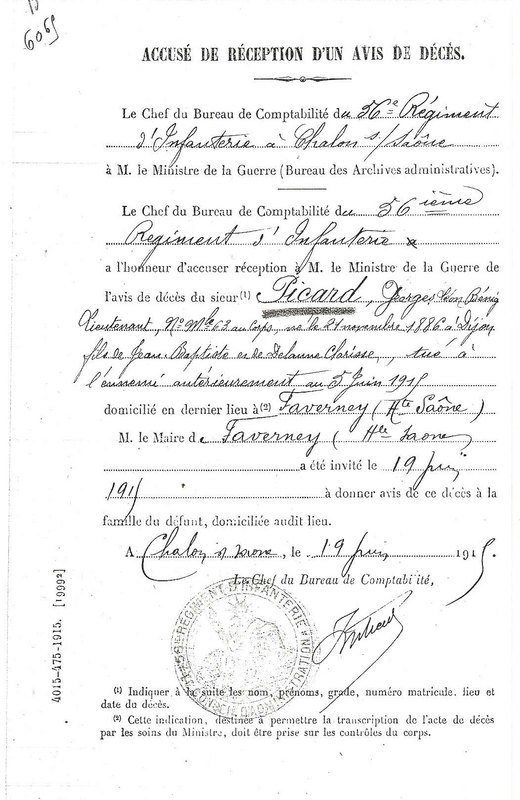 6065
ACCUSÉ DE RÉCEPTION D'UN AVIS DE DÉCÈS.
Le Chef du Bureau de Comptabilité du 56e Régiment
d'Infanterie à Chalon s/Saône
à M. le Ministre de la Guerre (Bureau des Archives administratives).
Le Chef du Bureau de Comptabilité du 56 ième
Regiment d'Infanterie
a l'honneur d'accuser réception à M. le Ministre de la Guerre de
l'avis de décès du sieur (1) Picard, Georges Léon Bénig
Lieutenant, No Mle 63 au Corps, né le 21 novembre 1886 à Dijon
fils de Jean Baptiste et de Delaune Clarisse, tué à
l'ennemi antérieurement au 5 Juin 1915
domicilié en dernier lieu à (2) Faverney (Hte Saône)
M. le Maire de Faverney (Hte Saone)
a été invité le 19 juin
1915 à donner avis de ce décès à la
famille du défunt, domiciliée audit lieu.
A Chalon s saone, le 19 juin 1915.
Le Chef du Bureau de Comptabilité,
56e REGIMENT D'INFANTERIE
CONSEIL D'ADMINISTRATION
4015-475-1915. [19992]
(1) Indiquer à la suite les nom, prénoms, grade, numéro matricule, lieu et
date du décès.
(2) Cette indication, destinée à permettre la transcription de l'acte de décès
par les soins du Ministre, doit être prise sur les contrôles du corps.